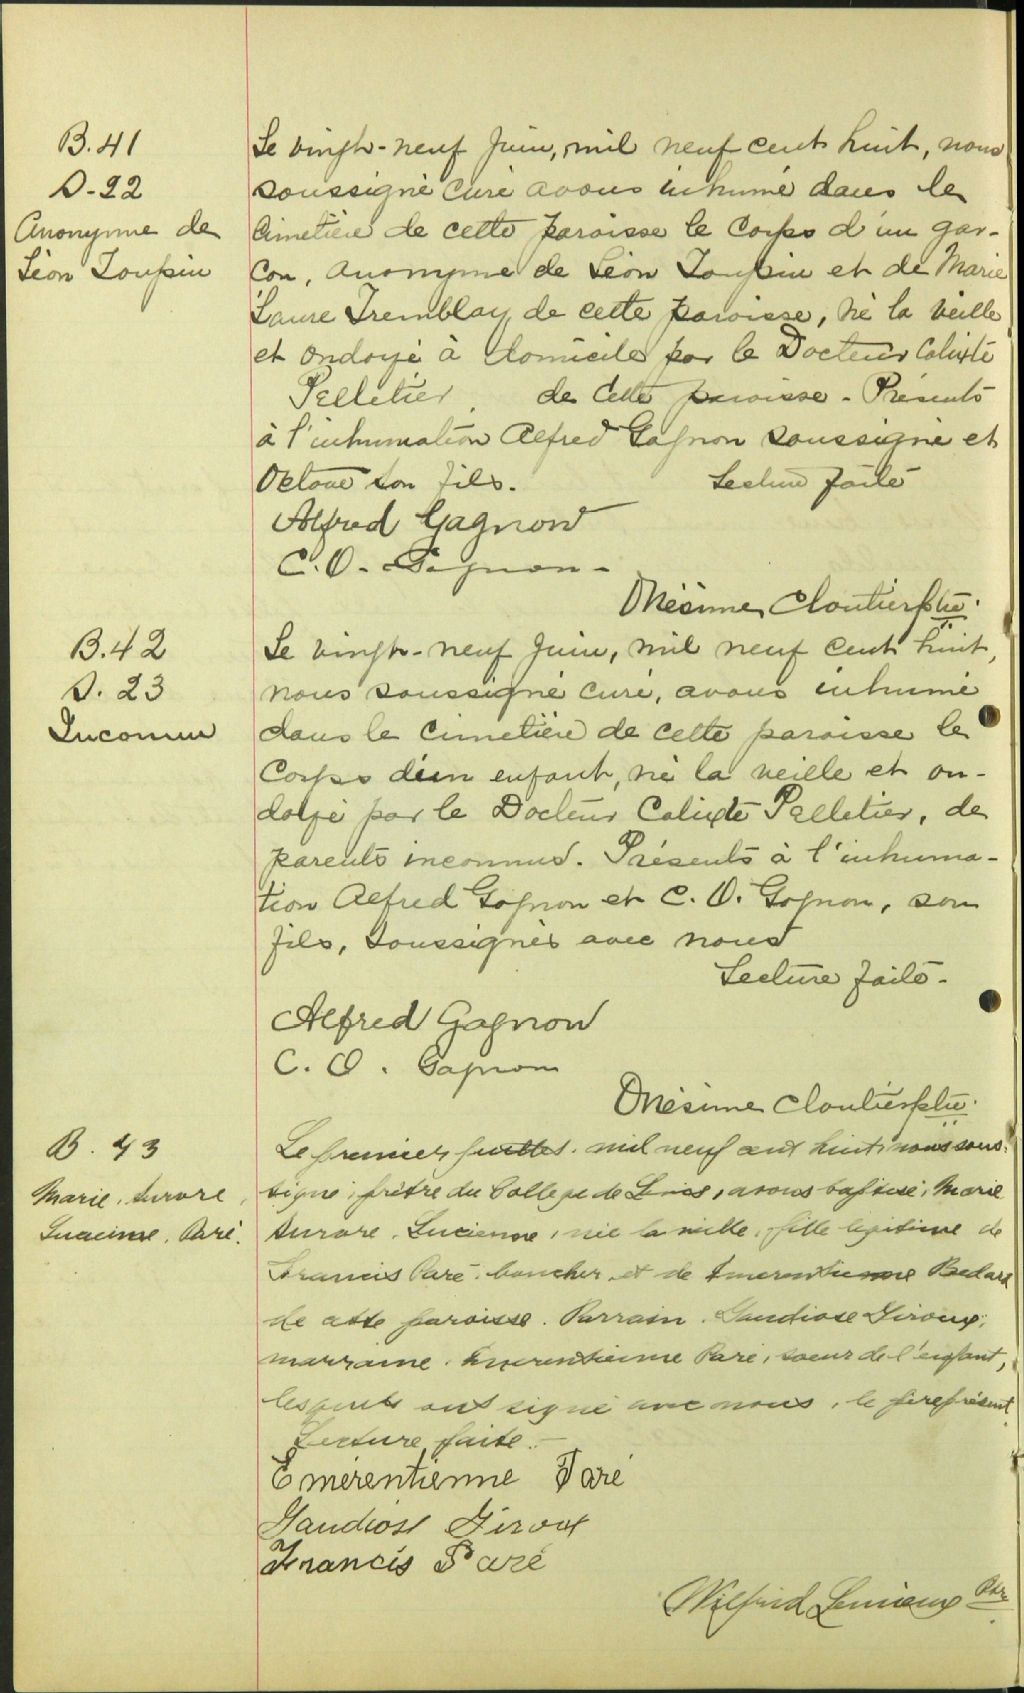 B.41
S-22
Anonyme de
Léon Toupin
Le vingt-neuf Juin, mil neuf cent huit, nous
soussigné curé avons inhumé dans le
Cimetière de cette paroisse le Corps d'un gar-
con, anonyme de Léon Toupin et de Marie
Laure Tremblay, de cette paroisse, né la veille
et ondoyé à domicile par le Docteur Calixte
Pelletier de cette paroisse - Présents
à l'inhumation Alfred Gagnon soussigné et
Octave son fils. Lecture faite
Alfred Gagnon
C.O. Gagnon -
Onésime Cloutier ptre.
B.42
S. 23
Inconnu
Le vingt-neuf Juin, mil neuf cent huit,
nous soussigné curé, avons inhumé
dans le Cimetière de cette paroisse le
Corps d'un enfant, né la veille et on-
doyé par le Docteur Calixte Pelletier, de
parents inconnus. Présents à l'inhuma-
tion Alfred Gagnon et C. O. Gagnon, son
fils, soussignés avec nous
Lecture faite -
Alfred Gagnon
C. O. Gagnon
Onésime Cloutier ptre.
B. 43
Marie, Aurore,
Lucienne, Paré.
Le premier juillet, mil neuf cent huit, nous sous-
signé, prêtre du Collège de Lévis, avons baptisé, Marie
Aurore, Lucienne, née la veille, fille légitime de
Francis Paré, boucher, et de Emerentienne Bedard
de cette paroisse. Parrain, Gaudiose Giroux;
marraine, Emerentienne Paré, soeur de l'enfant,
lesquels ont signé avec nous, le père présent.
Lecture faite.-
Emérentienne Paré
Gaudiose Giroux
Francis Paré
Wilfrid Lemieux Ptre